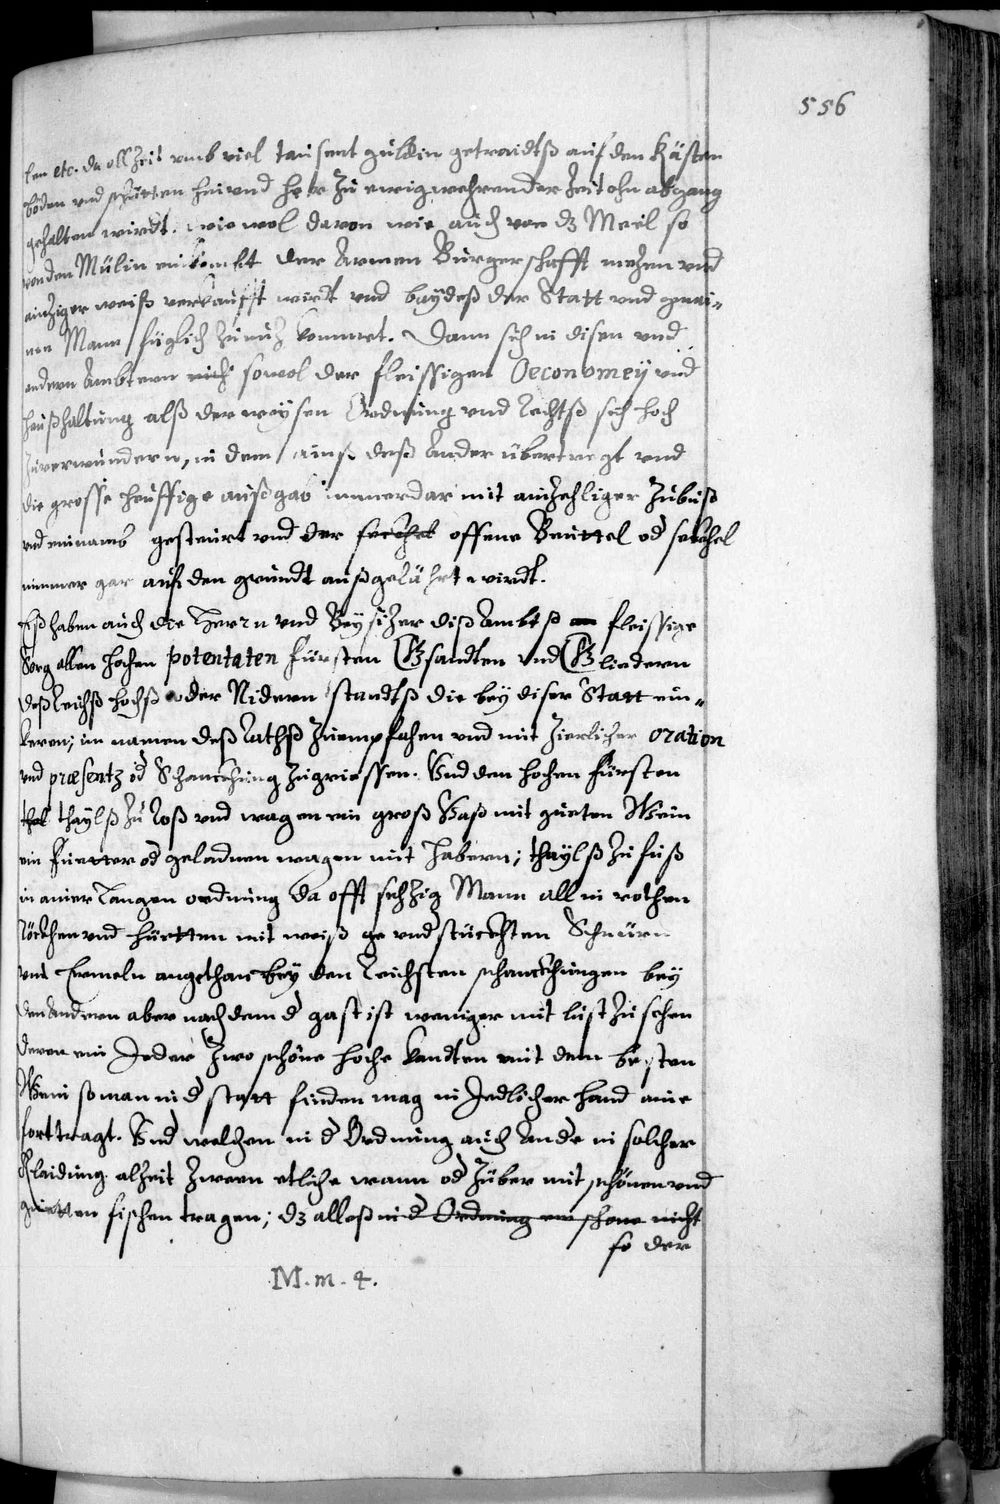 556
len etc. da allzeit umb viel tausent gulden getraidtß auf den Kästen
böden und schutten hin und her zu ewigwehrender Zeit ohn abgang
gehalten wirdt. wie wol davon wie auch von dz Meel so
von den Mülin einkombt der Armen Burgerschafft mezen und
einziger weiß verkaufft wirdt und baydeß der Statt und gmai-
nen Mann füglich zu nuz kommet. Dann sich in disen und
andern Ambtern nicht sowol der fleissigen Oeconomey und
haußhaltung alß der weysen Ordnung und Rechtß sich hoch
zuverwundern, in dem ainß deß ander übertregt und
die grosse heuffige außgab immerdar mit ainzehliger Zubuß
und einamb gesteurt und der seckhel offene Beuttel od seckhel
nimmer gar auf den grundt außgelährt wirdt.
Eß haben auch die Herrn und Beysizer diß Ambtß an fleissige
Sorg allen hochen potentaten Fürsten Gsandten und Gliedern
deß Reichß hochß oder Nidern standtß die bey diser Statt ein-
keren; im namen deß Rathß zu empfahen und mit zierlicher oration
und præsentz od Schanckhung zugriessen. Und den hochen Fürsten
thal thaylß zu Roß und wagen ein groß Vaß mit guten Wein
ein Fuetter od geladnen wagen mit Habern; thaylß zu fuß
in ainer langen ordnung da offt sechzig Mann all in rothen
Röckhen und Huetten mit weiß ge und stuckhten Schnürn
und Ermeln angethan bey den Reichsten schanckhungen bey
den Andern aber nach dem d gast ist weniger mit lust zu sehen
deren ein Jeder zwo schöne hoche kandten mit dem besten
Wein so man in d statt finden mag in Jedlicher hand aine
fort tragt. Und welchen in d Ordnung auch Andr in solcher
Klaidung alzeit zween etliche wann od Züber mit schönen und
guetten fischen tragen; dz alleß in d Ordnung ein schone nicht
so der
M. m. 4.